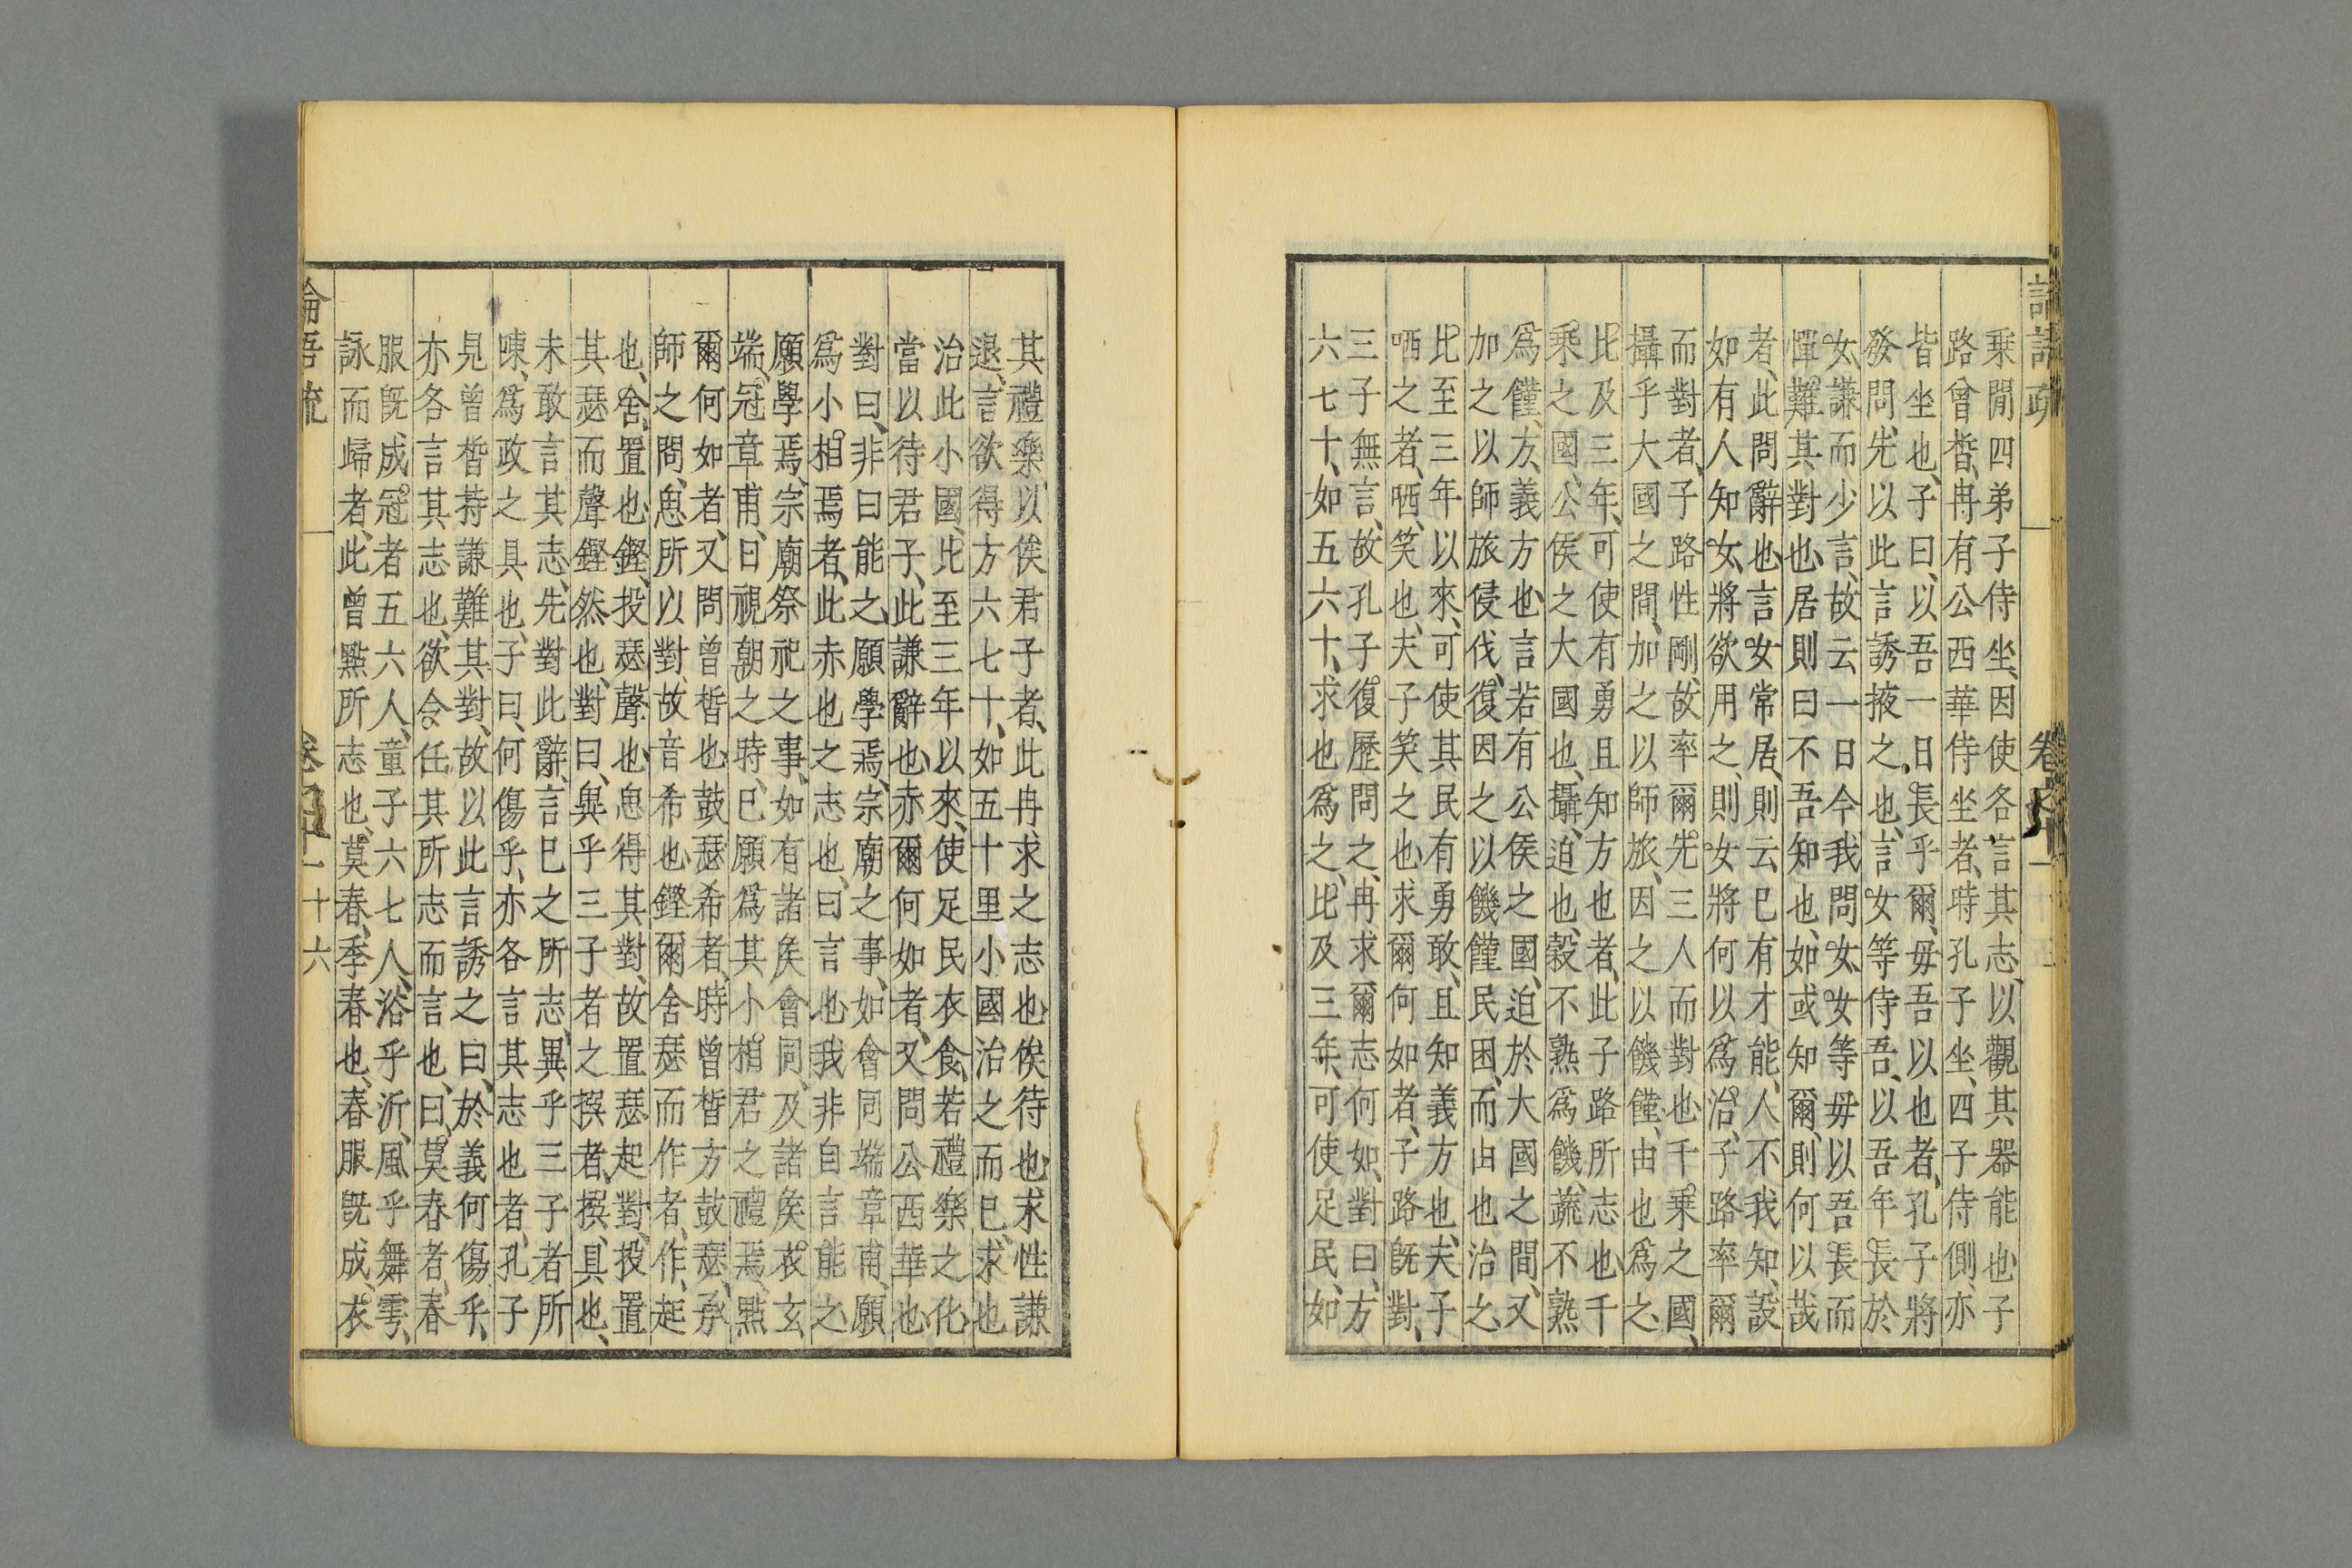 乗閒四弟子侍坐、因使各言其志、以觀其器能也、子
路曾晳、冉有公西華侍坐者、時孔子坐、四子侍側、亦
皆坐也、子曰、以吾一日長乎爾、毋吾以也者、孔子將
發問、先以此言誘掖之也、言女等侍吾、以吾年長於
女、謙而少言、故云一日今我問女、女等毋以吾長而
憚難其對也、居則曰不吾知也、如或知爾、則何以哉
者、此問辭也、言女常居、則云已有才能、人不我知、設
如有人知女、將欲用之、則女將何以爲治、子路率爾
而對者、子路性剛、故率爾先三人而對也、千乗之國、
攝乎大國之間、加之以師旅、因之以饑饉、由也爲之、
比及三年、可使有勇且知方也者、此子路所志也、千
乗之國、公侯之大國也、攝、迫也、穀不熟爲饑、蔬不熟
爲饉、方、義方也、言若有公侯之國、迫於大國之間、又
加之以師旅侵伐、復因之以饑饉民困、而由也治之、
比至三年以來、可使其民有勇敢、且知義方也、夫子
哂之者、哂、笑也、夫子笑之也、求爾何如者、子路旣對、
三子無言、故孔子復歷問之、冉求爾志何如、對曰、方
六七十、如五六十、求也爲之、比及三年、可使足民、如
其禮樂、以俟君子者、此冉求之志也、俟待也、求性謙
退、言欲得方六七十、如五十里小國治之而已、求也
治此小國、比至三年以來、使足民衣食、若禮樂之化、
當以待君子、此謙辭也、赤爾何如者、又問公西華也
對曰、非曰能之、願學焉、宗廟之事、如會同端章甫、願
爲小相焉者、此赤也之志也、曰言也我非自言能之
願學焉、宗廟祭祀之事、如有諸侯會同、及諸侯衣玄
端、冠章甫、日視朝之時、已願爲其小相君之禮焉、㸃
爾何如者、又問曾晳也、鼓瑟希者、時曾晳方鼓瑟、承
師之問、思所以對、故音希也、鏗爾舍瑟而作者、作、起
也、舍、置也、鏗、投瑟聲也、思得其對、故置瑟起對、投置
其瑟而聲鏗然也、對曰、異乎三子者之撰者、撰、具也、
未敢言其志、先對此辭、言已之所志、異乎三子者所
陳、爲政之具也、子曰、何傷乎、亦各言其志也者、孔子
見曾晳持謙難其對、故以此言誘之曰、於義何傷乎、
亦各言其志也、欲令任其所志而言也、曰、莫春者、春
服旣成、冠者五六人、童子六七人、浴乎沂、風乎舞雩、
詠而歸者、此曾㸃所志也、莫春、季春也、春服旣成、衣
論吾疏
十六